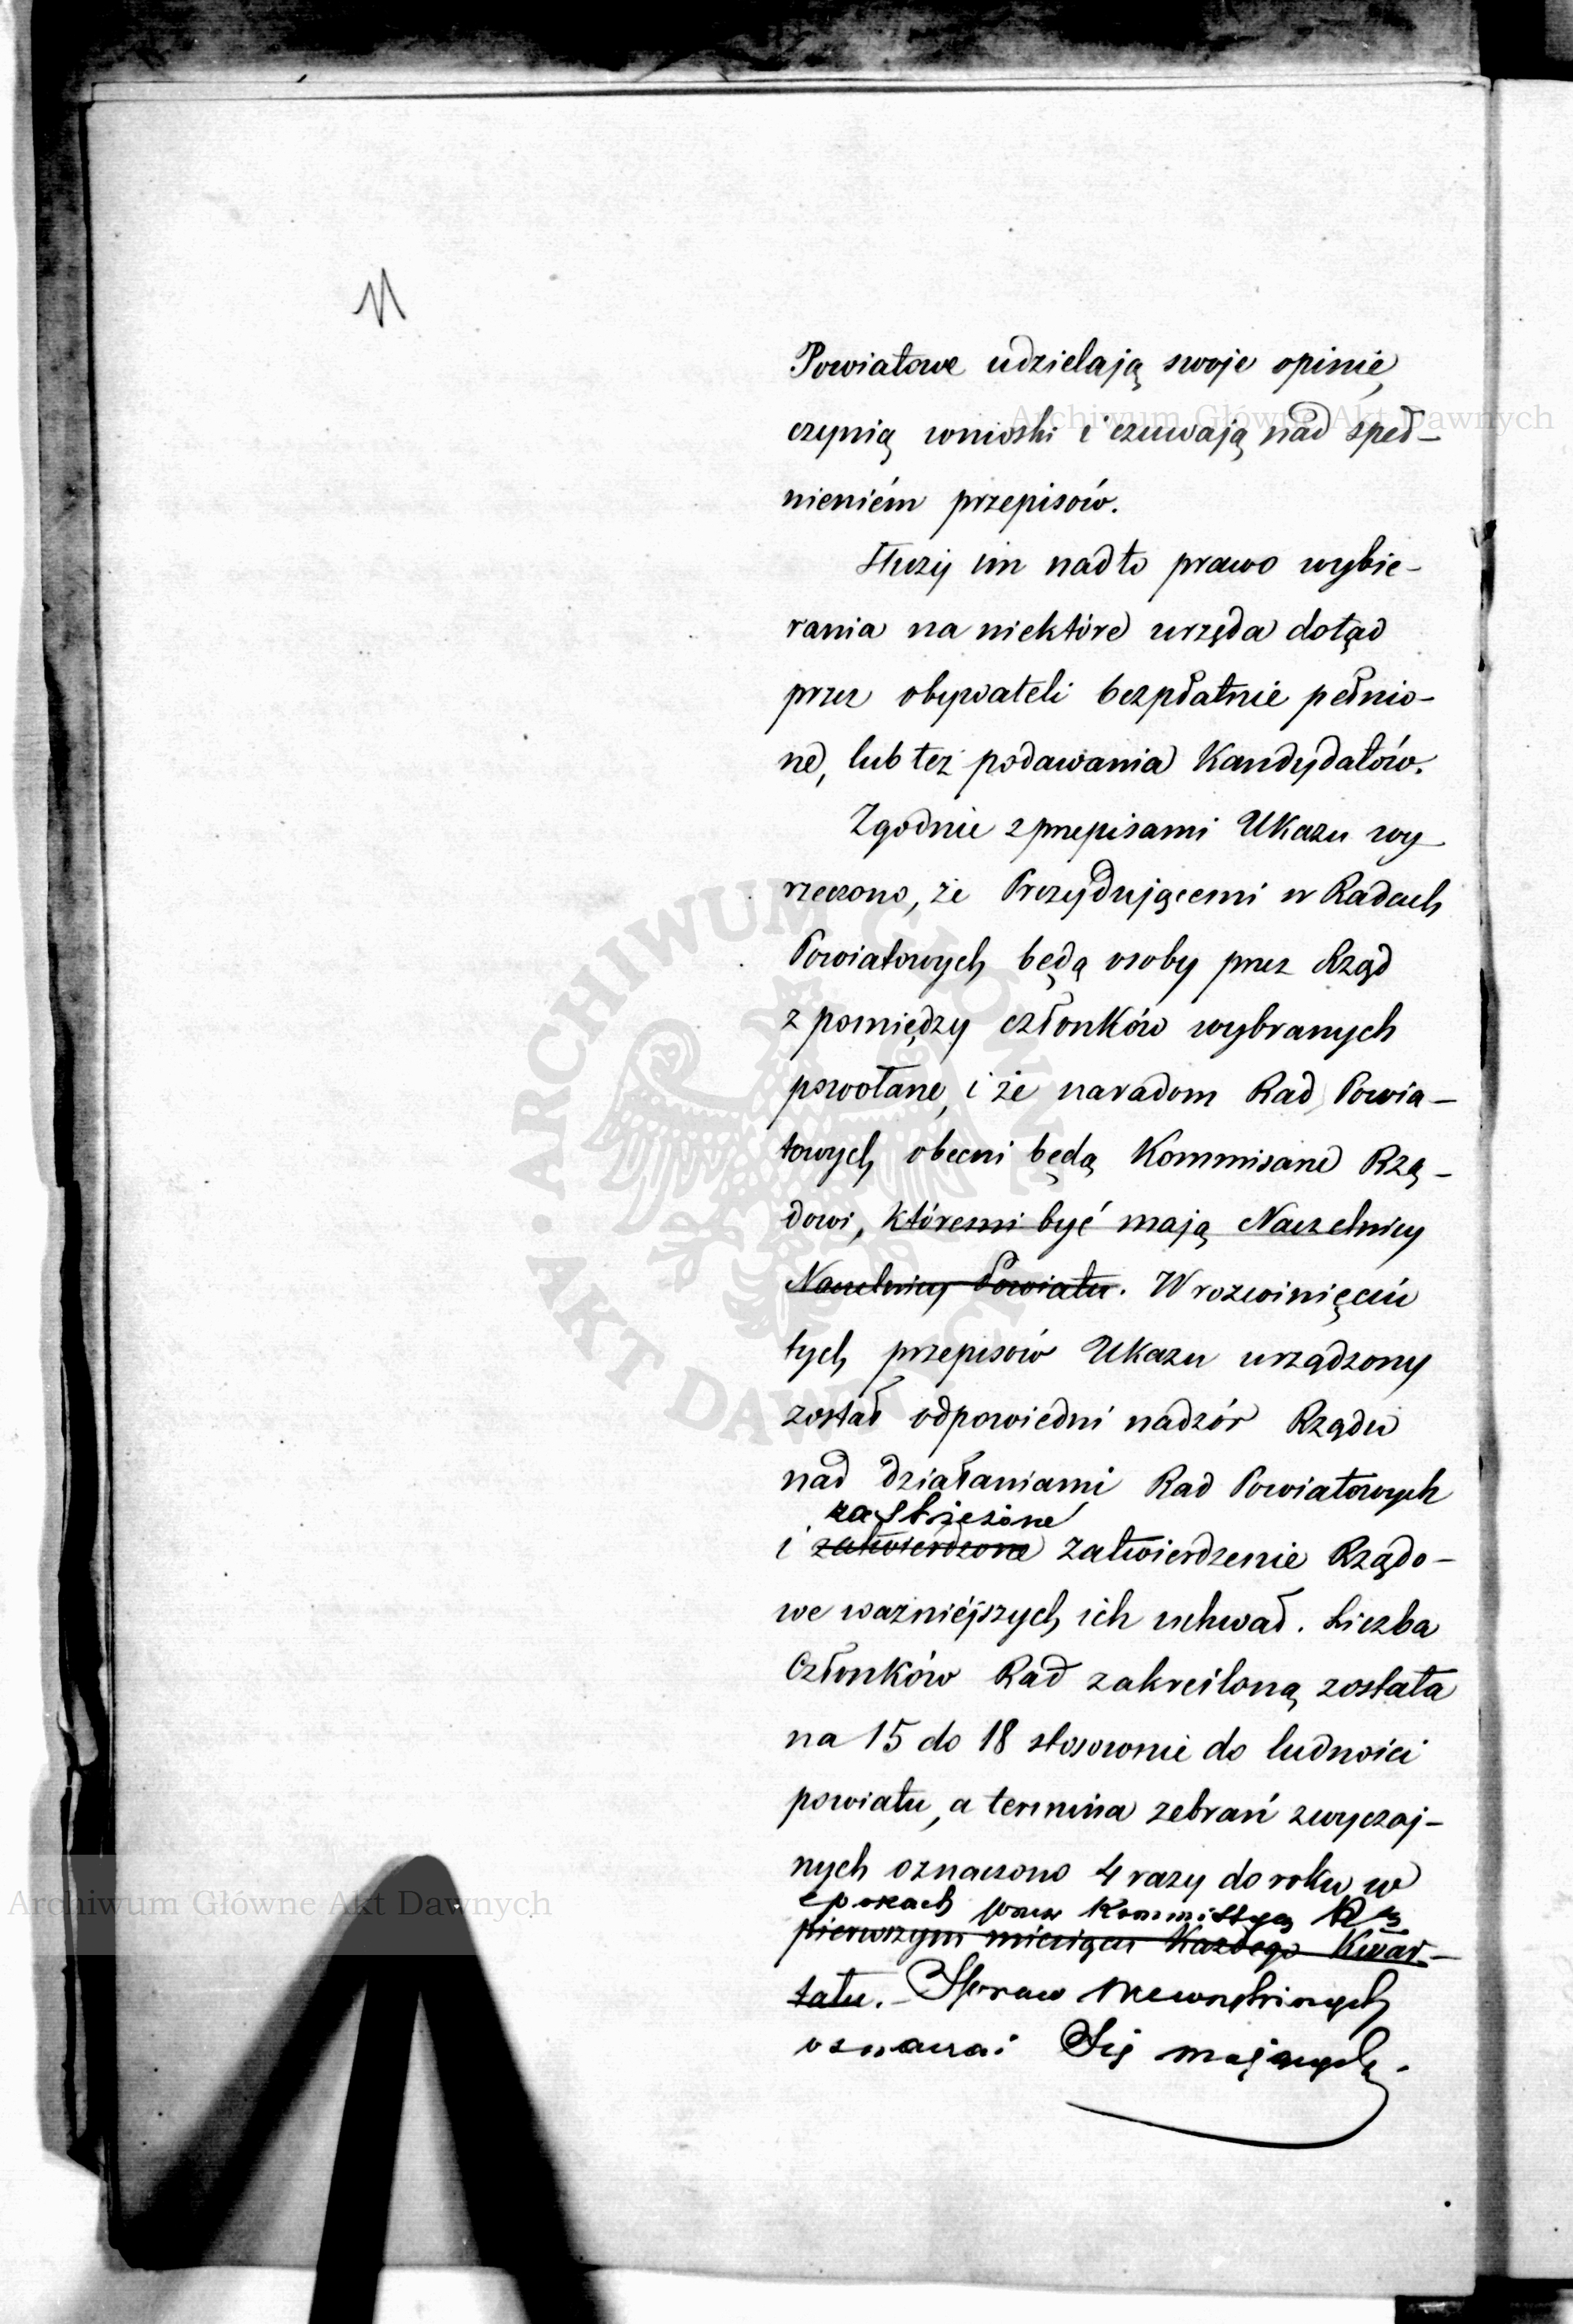 Powiatowe udzielają swoje opinie,
czynią wnioski i czuwają nad speł-
nieniém przepisów.
Służy im nadto prawo wybie-
rania na niektóre urzęda dotąd
przez obywateli bezpłatnie pełnio-
ne, lub też podawania Kandydatów.
Zgodnie z przepisami Ukazu wy-
rzeczono, że Prezydującemi w Radach
Powiatowych będą osoby przez Rząd
z pomiędzy członków wybranych
powołane, i że naradom Rad Powia-
towych obecni będą Kommisarze Rzą-
dowi, któremi być mają Naczelnicy
Naczelnicy Powiatu. W rozwinięciu
tych przepisów Ukazu urządzony
został odpowiedni nadzór Rządu
nad działaniami Rad Powiatowych
zastrzeżone
i zatwierdzone zatwierdzenie Rządo-
we ważniejszych ich uchwał. Liczba
Członków Rad zakreśloną została
na 15 do 18 stosownie do ludności
powiatu, a termina zebrań zwyczaj-
nych oznaczono 4 razy do roku w
epokach przez Kommissyą Rz
pierwszym miesiącu Każdego Kwar-
tału. Spraw Wewnętrznych
oznaczać Się mających.
Archiwum Główne Akt Dawnych
Archiwum Główne Akt Dawnych
ARCHIWUM GŁÓWNE
AKT DAWNYCH